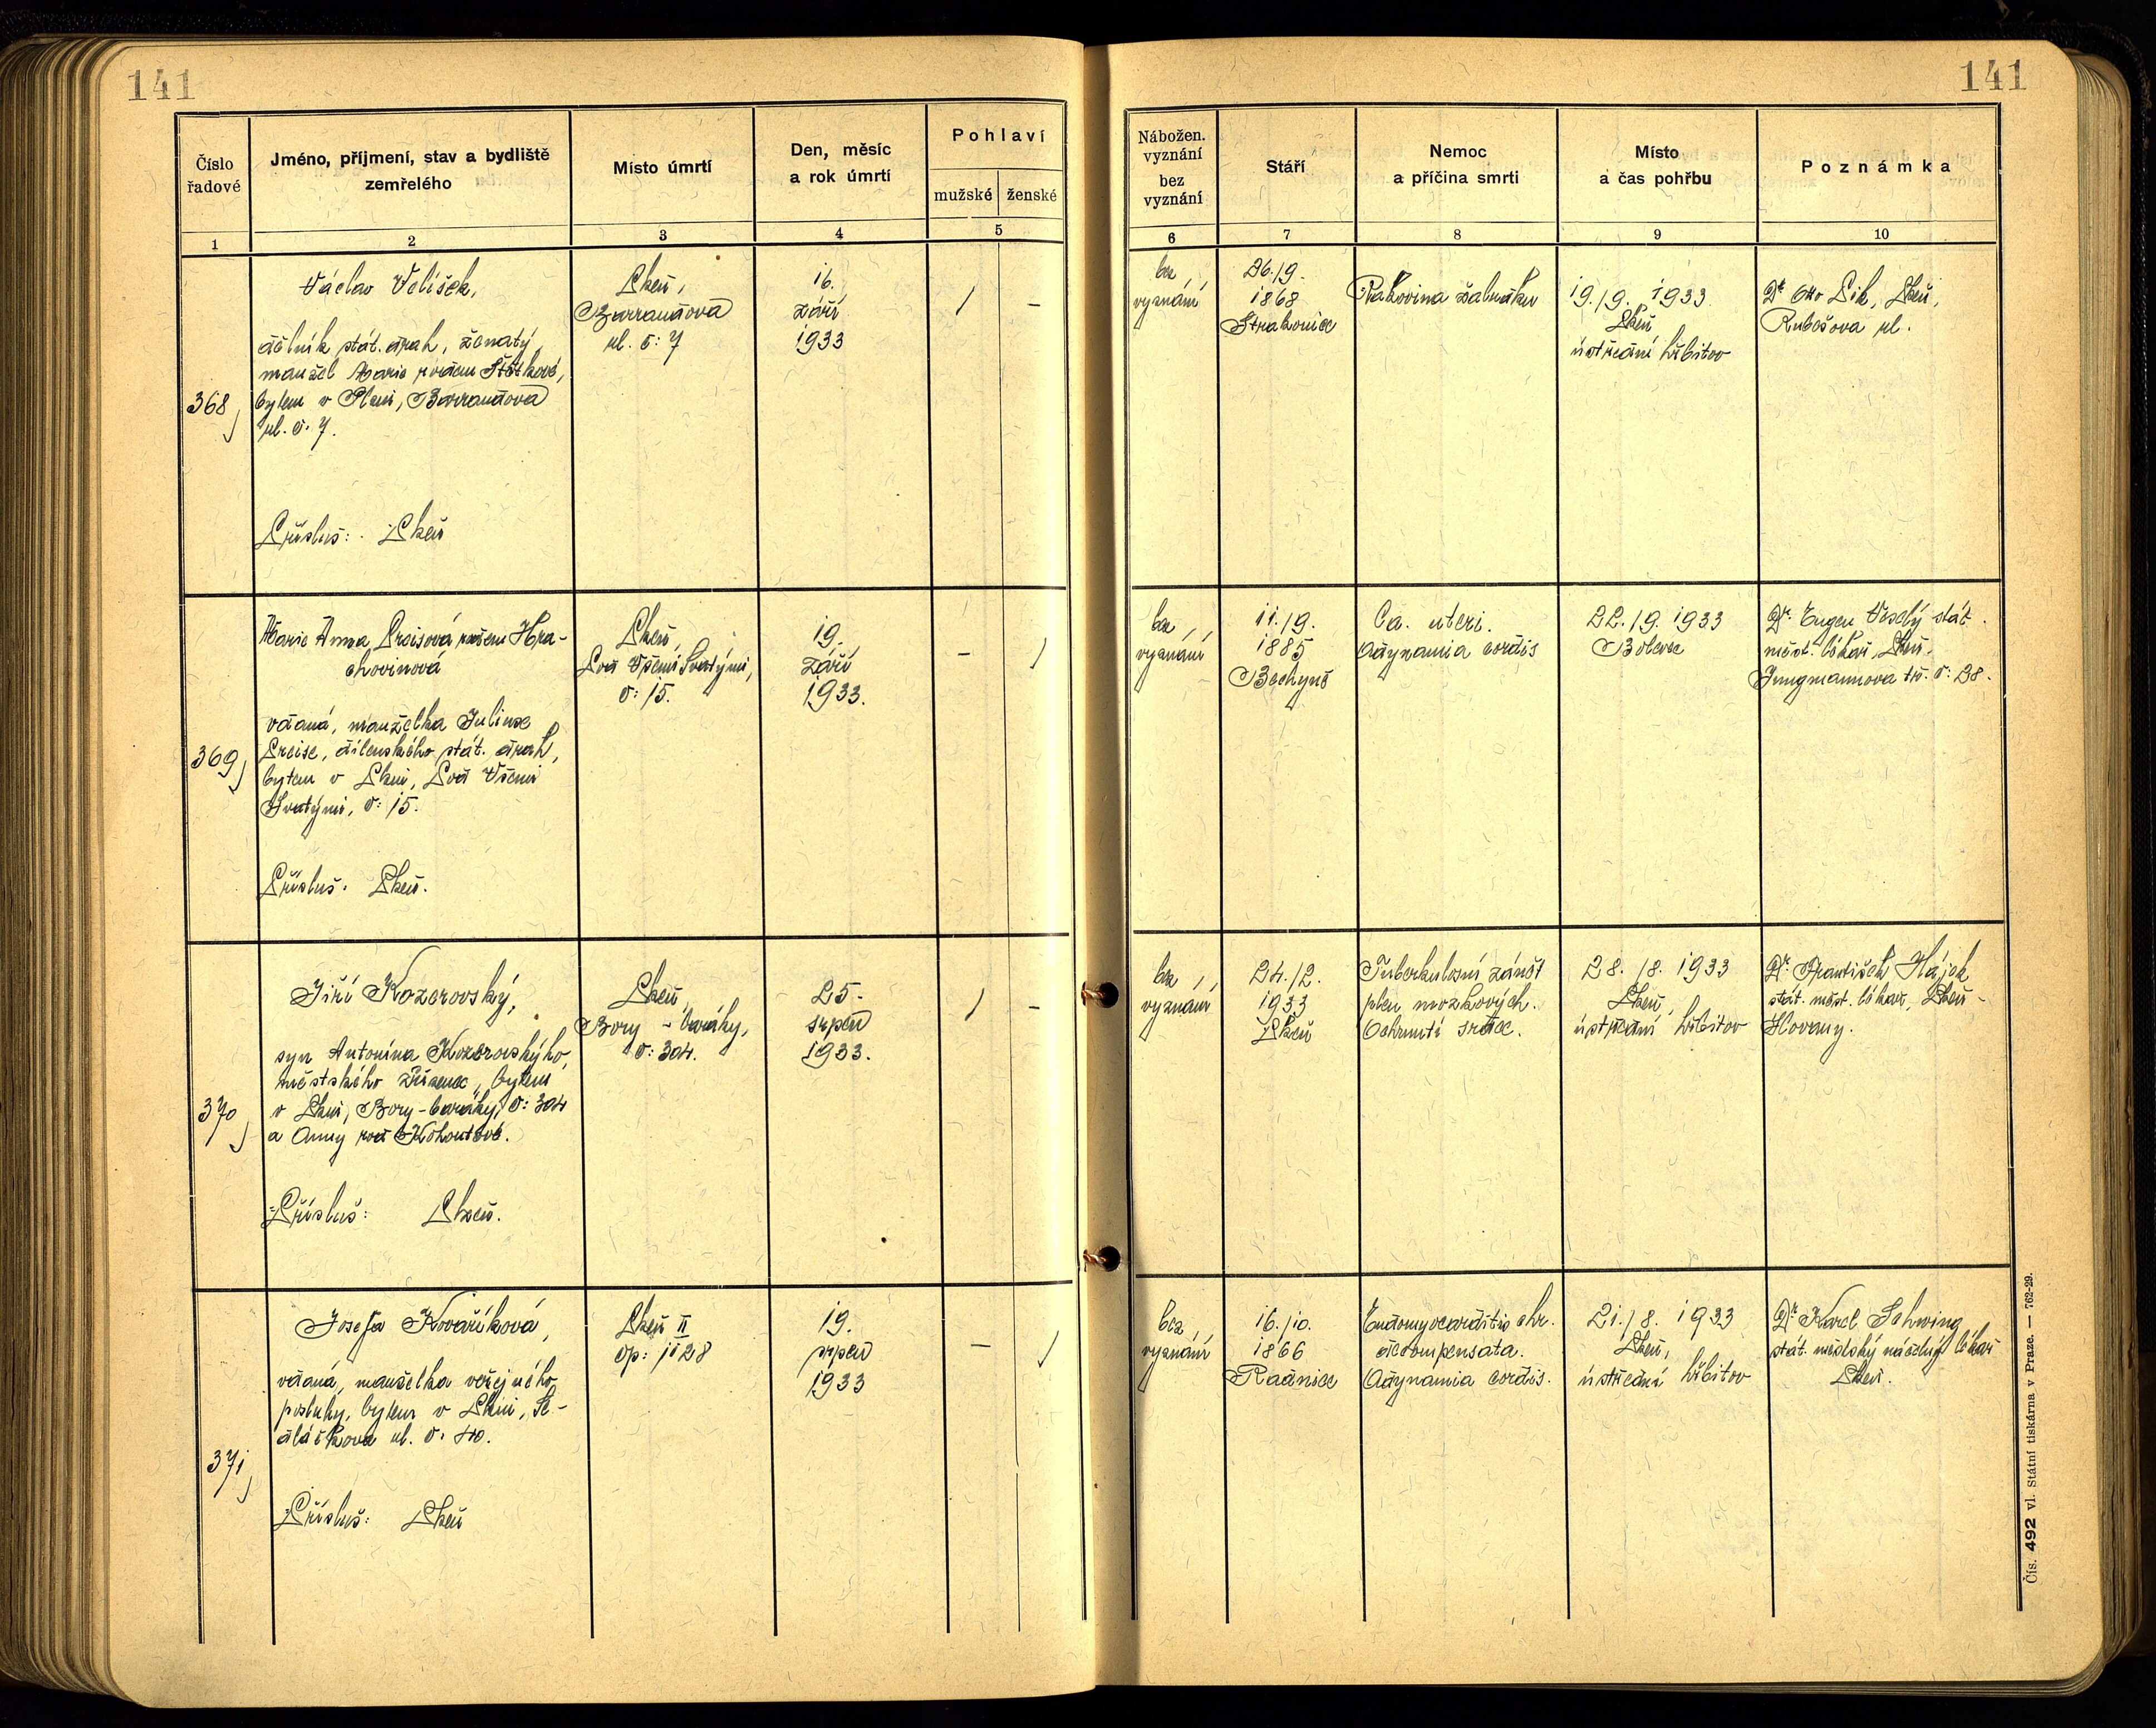 141
Číslo
řadové
Jméno, příjmení, stav a bydliště
zemřelého
Místo úmrtí
Den, měsíc
a rok úmrtí
Pohlaví
mužské
ženské
1
2
3
4
5
368
Václav Velíšek,
dělník stát. drah, ženatý,
manžel Marie rozen Štětkové,
bytem v Plzni, Barrandova
ul. č: 7.
Přísluš: Plzeň
Plzeň,
Barrandova
ul. č: 7
16.
září
1933
/
-
369
Marie Anna Preisová rozen Hra-
chovinová
vdaná, manželka Juliuse
Preise, dílenského stát. drah,
bytem v Plzni, Pod Všemi
Svatými, č: 15.
Přísluš: Plzeň.
Plzeň,
Pod Všemi Svatými,
č: 15.
19.
září
1933.
-
/
370
Jiří Kozerovský,
syn Antonína Kozerovského,
městského zřízence, bytem
v Plzni, Bory - baráky, č: 304
a Anny roz Kohoutové.
Přísluš: Plzeň.
Plzeň,
Bory - baráky,
č: 304.
25.
srpen
1933.
/
-
371
Josefa Kovaříková,
vdaná, manželka veřejného
posluhy, bytem v Plzni, Se-
dláčkova ul. č. 40.
Přísluš: Plzeň
Plzeň II
čp: 1128
19.
srpen
1933
-
/
141
Nábožen.
vyznání
bez
vyznání
Stáří
Nemoc
a příčina smrti
Místo
a čas pohřbu
Poznámka
6
7
8
9
10
bez
vyznání
26./9.
1868
Strakonice
Rakovina žaludku
19./9. 1933
Plzeň
ústřední hřbitov
Dr Otto Pik, Plzeň,
Rubešova ul.
bez
vyznání
11./9.
1885
Bechyně
Ca. uteri.
Adynamia cordis
22./9. 1933
Bolevec
Dr. Eugen Veselý stát.
měst. lékař, Plzeň,
Jungmannova tř. č: 28.
bez
vyznání
24./2.
1933
Plzeň
Tuberkulosní zánět
plen mozkových.
Ochrnutí srdce.
28./8. 1933
Plzeň,
ústřední hřbitov
Dr. František Hájek
stát. měst. lékař, Plzeň -
Slovany.
bez
vyznání
16./10.
1866
Radnice
Endomyocarditis chr.
decompensata.
Adynamia cordis.
21./8. 1933
Plzeň,
ústřední hřbitov
Dr. Karel Schwing
stát. městský náčelný lékař
Plzeň.
Čís. 492 vl. Státní tiskárna v Praze. — 762-29.